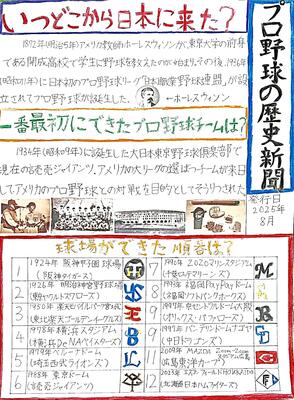 プロ野球の歴史新聞
発行日
2025年
8月
いつどこから日本に来た?
1872年(明治5年)アメリカ教師ホーレスウィルソンが、東京大学の前身
である開成高校で学生に野球を教えたのが始まり。その後、1936年
(昭和11年)に日本初のプロ野球リーグ「日本職業野球連盟」が設
立されてプロ野球が誕生した。
←ホーレスウィルソン
一番最初にできたプロ野球チームは?
1934年(昭和9年)に誕生した大日本東京野球倶楽部で
現在の読売ジャイアンツ。アメリカの大リーグの選ばつチームが来日
してアメリカのプロ野球との対戦を目的としてそうりつされた
球場ができた順番は?
1 1924年 阪神甲子園球場
(阪神タイガース)
2 1926年 明治神宮野球場
(東京ヤクルトスワローズ)
3 1950年 楽天モバイルパーク宮城
(東北楽天ゴールデンイーグルス)
4 1978年 横浜スタジアム
(横浜DeNAベイスターズ)
5 1979年 ベルーナドーム
(埼玉西武ライオンズ)
6 1988年 東京ドーム
(読売ジャイアンツ)
1990年 ZOZOマリンスタジアム
(千葉ロッテマリーンズ)
8 1993年 福岡PayPayドーム
(福岡ソフトバンクホークス)
1997年 京セラドーム大阪
(オリックスバファローズ)
1997年 バンテリンドームナゴヤ
(中日ドラゴンズ)
11 2009年 MAZDA Zoom-Zoom
広島東洋カープ
12 2023年 エスコンフィールドHOKKAIDO
(北海道日本ハムファイターズ)